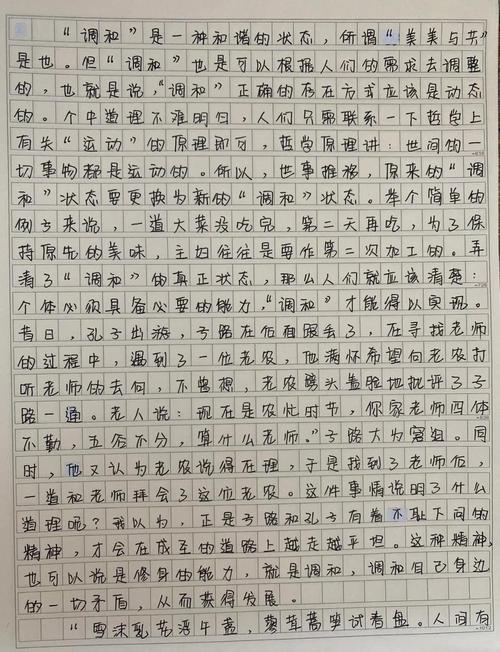 “调和”是一种和谐的状态，所谓“美美与共”
是也。但“调和”也是可以根据人们的需求去调整
的，也就是说，“调和”正确的存在方式应该是动态
的。个中道理不难明白，人们只需联系一下哲学上
有关“运动”的原理即可，哲学原理讲：世间的一
切事物都是运动的。所以，世事推移，原来的“调
和”状态要更换为新的“调和”状态。举个简单的
例子来说，一道大菜没吃完，第二天再吃，为了保
持原先的美味，主妇往往是要作第二次加工的。弄
清了“调和”的真正状态，那么人们就应该清楚：
个体必须具备必要的能力，“调和”才能得以实现。
昔日，孔子出游，子路在后面跟丢了，在寻找老师
的过程中，遇到了一位老农，他满怀希望向老农打
听老师的去向，不曾想，老农劈头盖脸地批评了子
路一通。老人说：现在是农忙时节，你家老师四体
不勤，五谷不分，算什么老师。”子路大为窘迫。同
时，他又认为老农说得在理，于是找到了老师后，
一道和老师拜会了这位老农。这件事情说明了什么
道理呢？我以为，正是子路和孔子有着不耻下问的
精神，才会在成圣的道路上越走越平坦。这种精神，
也可以说是修身的能力，就是调和，调和自己身边
的一切矛盾，从而获得发展。
“雪沫乳花浮午盏，蓼茸蒿笋试春盘。人间有